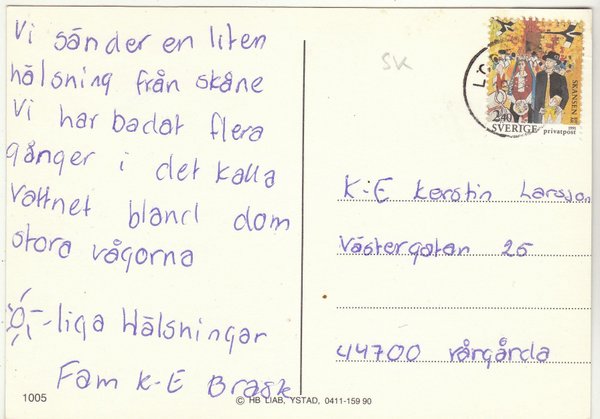 Vi sänder en liten
hälsning från skåne
Vi har badat flera
gånger i det kalla
vattnet bland dom
stora vågorna
-liga Hälsningar
Fam K-E Brask
1005
© HB LIAB, YSTAD, 0411-159 90
SK
SKANSEN
240
SVERIGE privatpost
1991
K-E Kerstin Larsson
Västergatan 25
44700 vårgårda